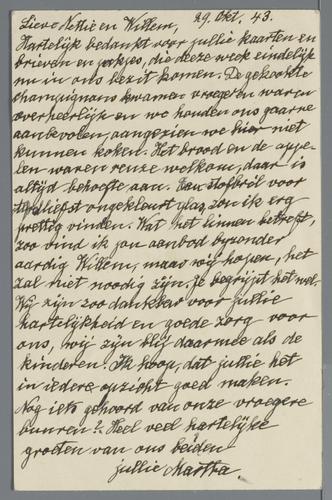 Lieve Nettie en Willem, 29. Okt. 43.
Hartelijk bedankt voor jullie kaarten en
brieven en pakjes, die deeze week eindelijk
nu in ons bezit komen. De gekookte
champignons kwamen vroeger en waren
overheerlijk en we houden ons gaarne
aanbevolen, aangezien we hier niet
kunnen koken. Het brood en de appe-
len waren reuze welkom, daar is
altijd behoefte aan. Een stofbril voor
liefst ongekleurt glas, zou ik erg
prettig vinden. Wat het linnen betreft,
zoo vind ik jou aanbod byzonder
aardig Willem, maar wij hopen, het
zal niet noodig zijn, je begrijpt het wel.
Wij zijn zoo dankbar voor jullie
hartelijkheid en goede zorg voor
ons, wij zijn blij daarmee als de
kinderen. Ik hoop, dat jullie het
in iedere opzicht goed maken.
Nog iets gehoord van onze vroegere
buuren? Heel veel hartelijke
groeten van ons beiden
jullie Martha